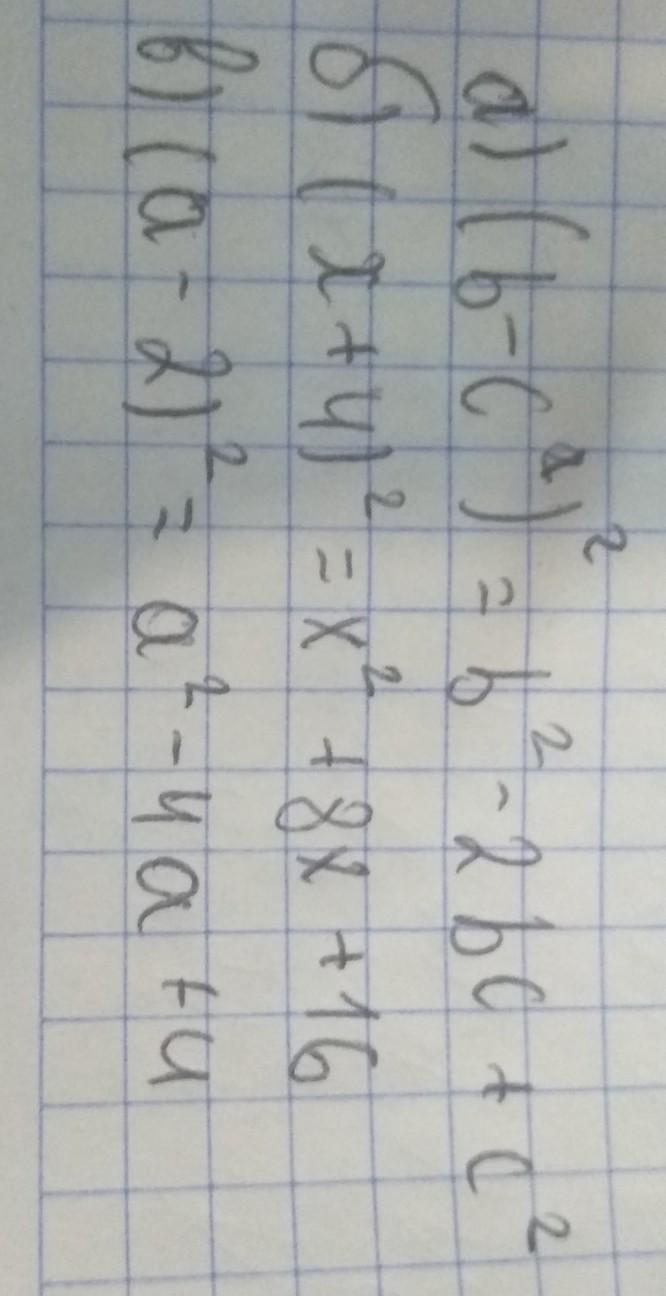 а) (b - c²)² = b² - 2bc + c²
б) (x + 4)² = x² + 8x + 16
в) (a - 2)² = a² - 4a + 4